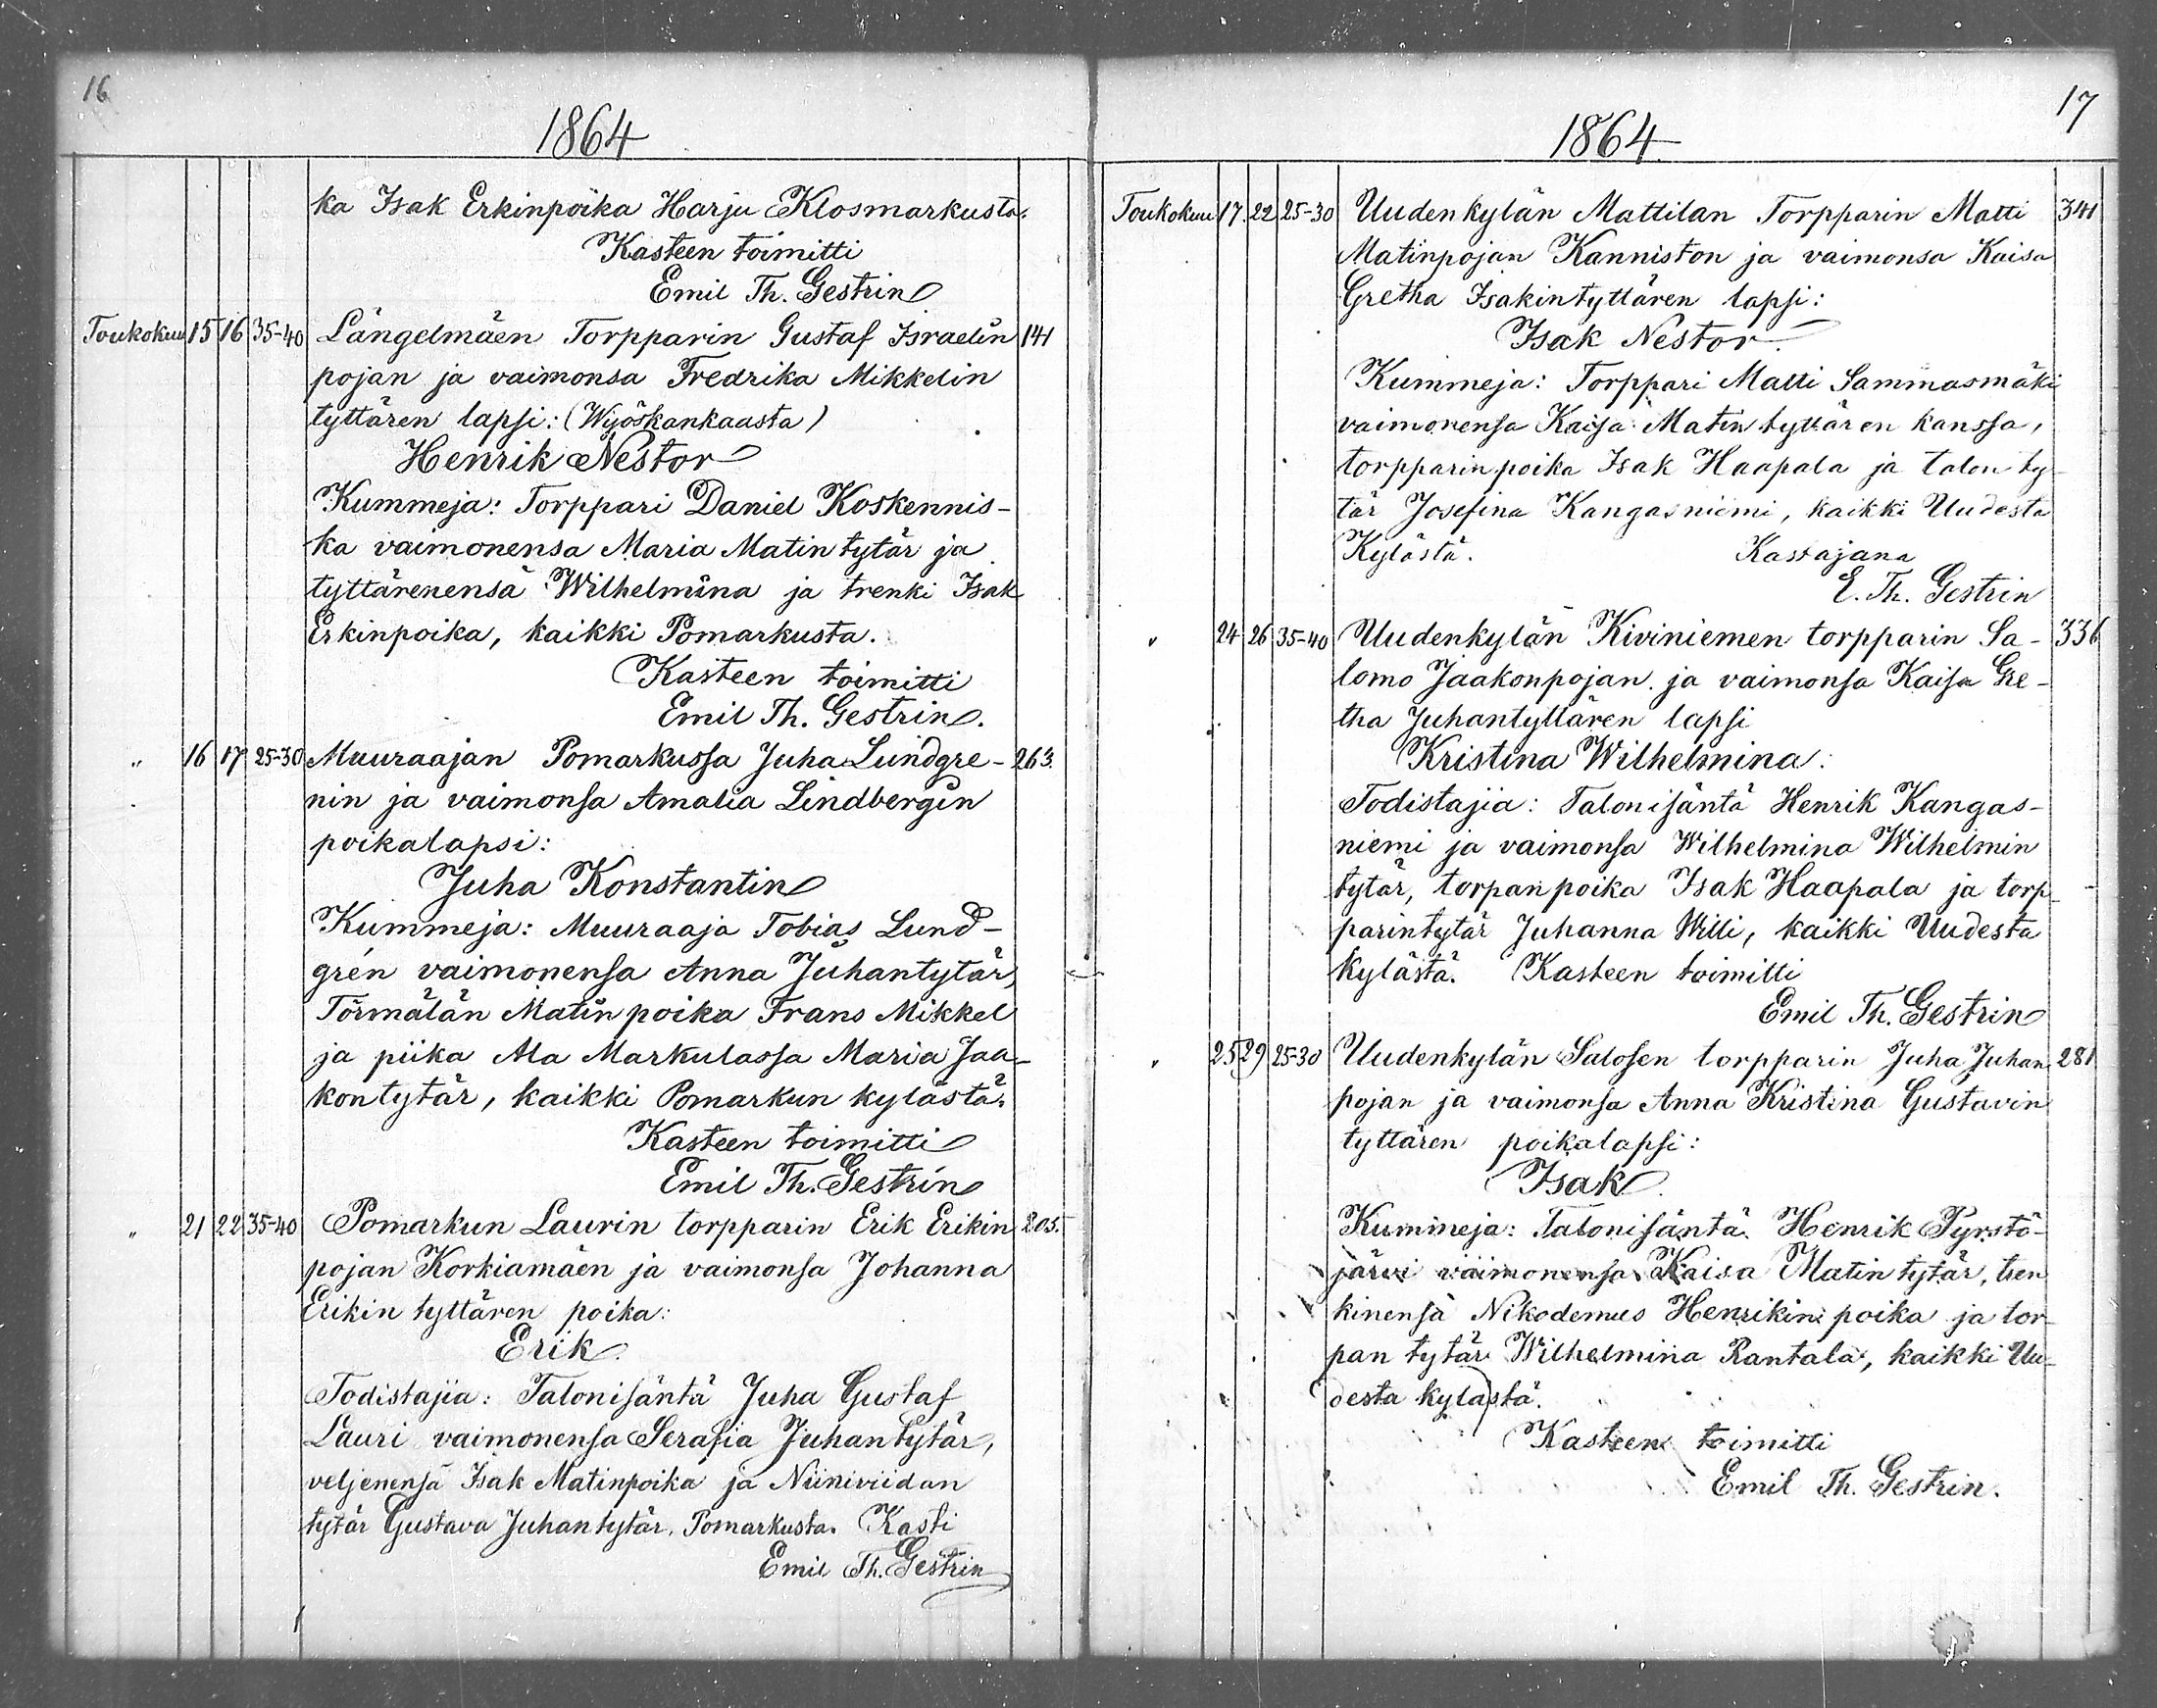 16
1864
ka Isak Erkinpoika Harju Klosmarkusta.
Kasteen toimitti
Emil Th. Gestrin
Toukokuu 15 16 35-40 Längelmäen Torpparin Gustaf Israelin 141
pojan ja vaimonsa Fredrika Mikkelin
tyttären lapsi: (Wyöskankaasta)
Henrik Nestor
Kummeja: Torppari Daniel Koskennis-
ka vaimonensa Maria Matin tytär ja
tyttärenensä Wilhelmina ja trenki Isak
Erkinpoika, kaikki Pomarkusta.
Kasteen toimitti
Emil Th. Gestrin.
" 16 17 25-30 Muuraajan Pomarkussa Juha Lundgre- 263.
nin ja vaimonsa Amalia Lindbergin
poikalapsi:
Juha Konstantin
Kummeja: Muuraaja Tobias Lund-
grén vaimonensa Anna Juhantytär,
Törmälän Matin poika Frans Mikkel
ja piika Ala Markulassa Maria Jaa-
kontytär, kaikki Pomarkun kylästä.
Kasteen toimitti
Emil Th. Gestrin
" 21 22 35-40 Pomarkun Laurin torpparin Erik Erikin 205.
pojan Korkiamäen ja vaimonsa Johanna
Erikin tyttären poika:
Erik.
Todistajia: Talonisäntä Juha Gustaf
Lauri vaimonensa Serafia Juhantytär,
veljenensä Isak Matinpoika ja Niiniviidan
tytär Gustava Juhantytär, Pomarkusta. Kasti
Emil Th. Gestrin
17
1864
Toukokuu 17. 22 25-30 Uudenkylän Mattilan Torpparin Matti 341
Matinpojan Kanniston ja vaimonsa Kaisa
Gretha Isakintyttären lapsi:
Isak Nestor.
Kummeja: Torppari Matti Sammasmäki
vaimonensa Kaisa Matin tyttären kanssa,
torpparinpoika Isak Haapala ja talon ty-
tär Josefina Kangasniemi, kaikki Uudesta
Kylästä. Kastajana
E. Th. Gestrin
" 24 26 35-40 Uudenkylän Kiviniemen torpparin Sa- 336
lomo Jaakonpojan ja vaimonsa Kaisa Gre-
tha Juhantyttären lapsi
Kristina Wilhelmina.
Todistajia: Talonisäntä Henrik Kangas-
niemi ja vaimonsa Wilhelmina Wilhelmin
tytär, torpanpoika Isak Haapala ja torp-
parintytär Juhanna Willi, kaikki Uudesta
kylästä. Kasteen toimitti
Emil Th. Gestrin
" 25 29 25-30 Uudenkylän Salosen torpparin Juha Juhan 281
pojan ja vaimonsa Anna Kristina Gustavin
tyttären poikalapsi:
Isak.
Kummeja: Talonisäntä Henrik Pyrstö-
järvi vaimonensa Kaisa Matin tytär, tren
kinensä Nikodemus Henrikin poika ja tor-
pan tytär Wilhelmina Rantala, kaikki Uu-
desta kylästä.
Kasteen toimitti
Emil Th. Gestrin.